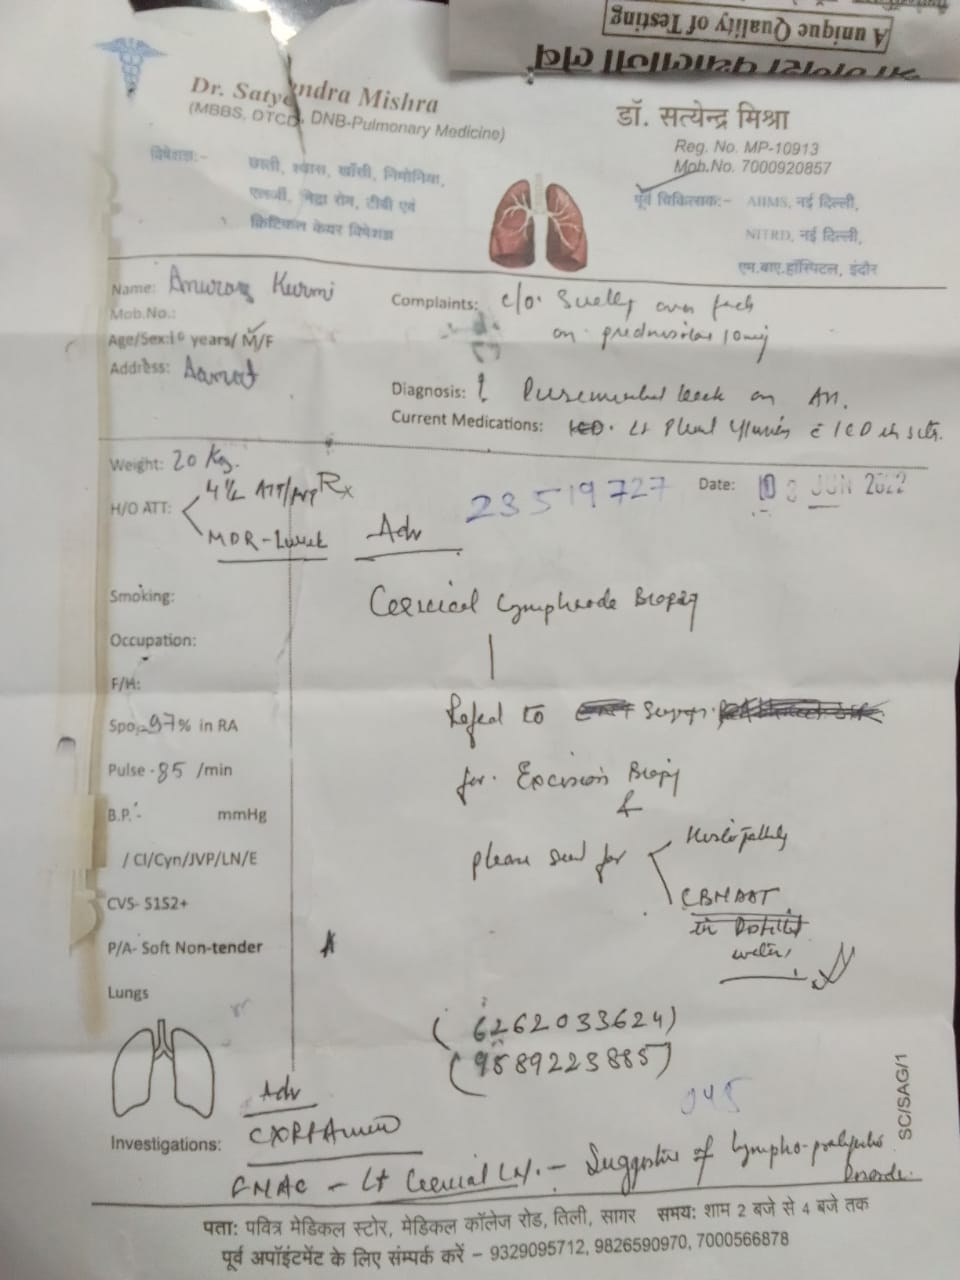 A unique Quality of Testing
Dr. Satyendra Mishra
(MBBS, DTCD, DNB-Pulmonary Medicine)
डॉ. सत्येन्द्र मिश्रा
Reg. No. MP-10913
Mob.No. 7000920857
विशेषज्ञ:- छाती, श्वास, खाँसी, निमोनिया,
एलर्जी, निद्रा रोग, टीबी एवं
क्रिटिकल केयर विशेषज्ञ
पूर्व चिकित्सक:- AIIMS, नई दिल्ली,
NITRD, नई दिल्ली,
एम.वाए.हॉस्पिटल, इंदौर
Name: Anurag Kurmi
Mob.No.:
Age/Sex: years/ M/F
Address:
Complaints: c/o. over
on 10mg
Diagnosis: ? on
Current Medications: ICD. Lt ICD
Weight: 20 Kg.
H/O ATT: ATT Rx
MDR-
23519727
Date: 03 JUN 2022
Adv
Smoking:
Occupation:
F/H:
Spo2-97% in RA
Pulse -85 /min
B.P.- mmHg
/ Cl/Cyn/JVP/LN/E
CVS- S1S2+
P/A- Soft Non-tender
Lungs
Cervical Lymphnode Biopsy
Refer to
for. Excision Biopsy
&
please send for Histopathology
CBNAAT
in Distilled
water
(6262033624)
(9589223885)
045
SC/SAG/1
Adv
Investigations: CXR PA view
FNAC - Lt Cervical LN. - Suggestive of lympho-proliferative
Disorder.
पता: पवित्र मेडिकल स्टोर, मेडिकल कॉलेज रोड, तिली, सागर समय: शाम 2 बजे से 4 बजे तक
पूर्व अपॉइंटमेंट के लिए संम्पर्क करें – 9329095712, 9826590970, 7000566878